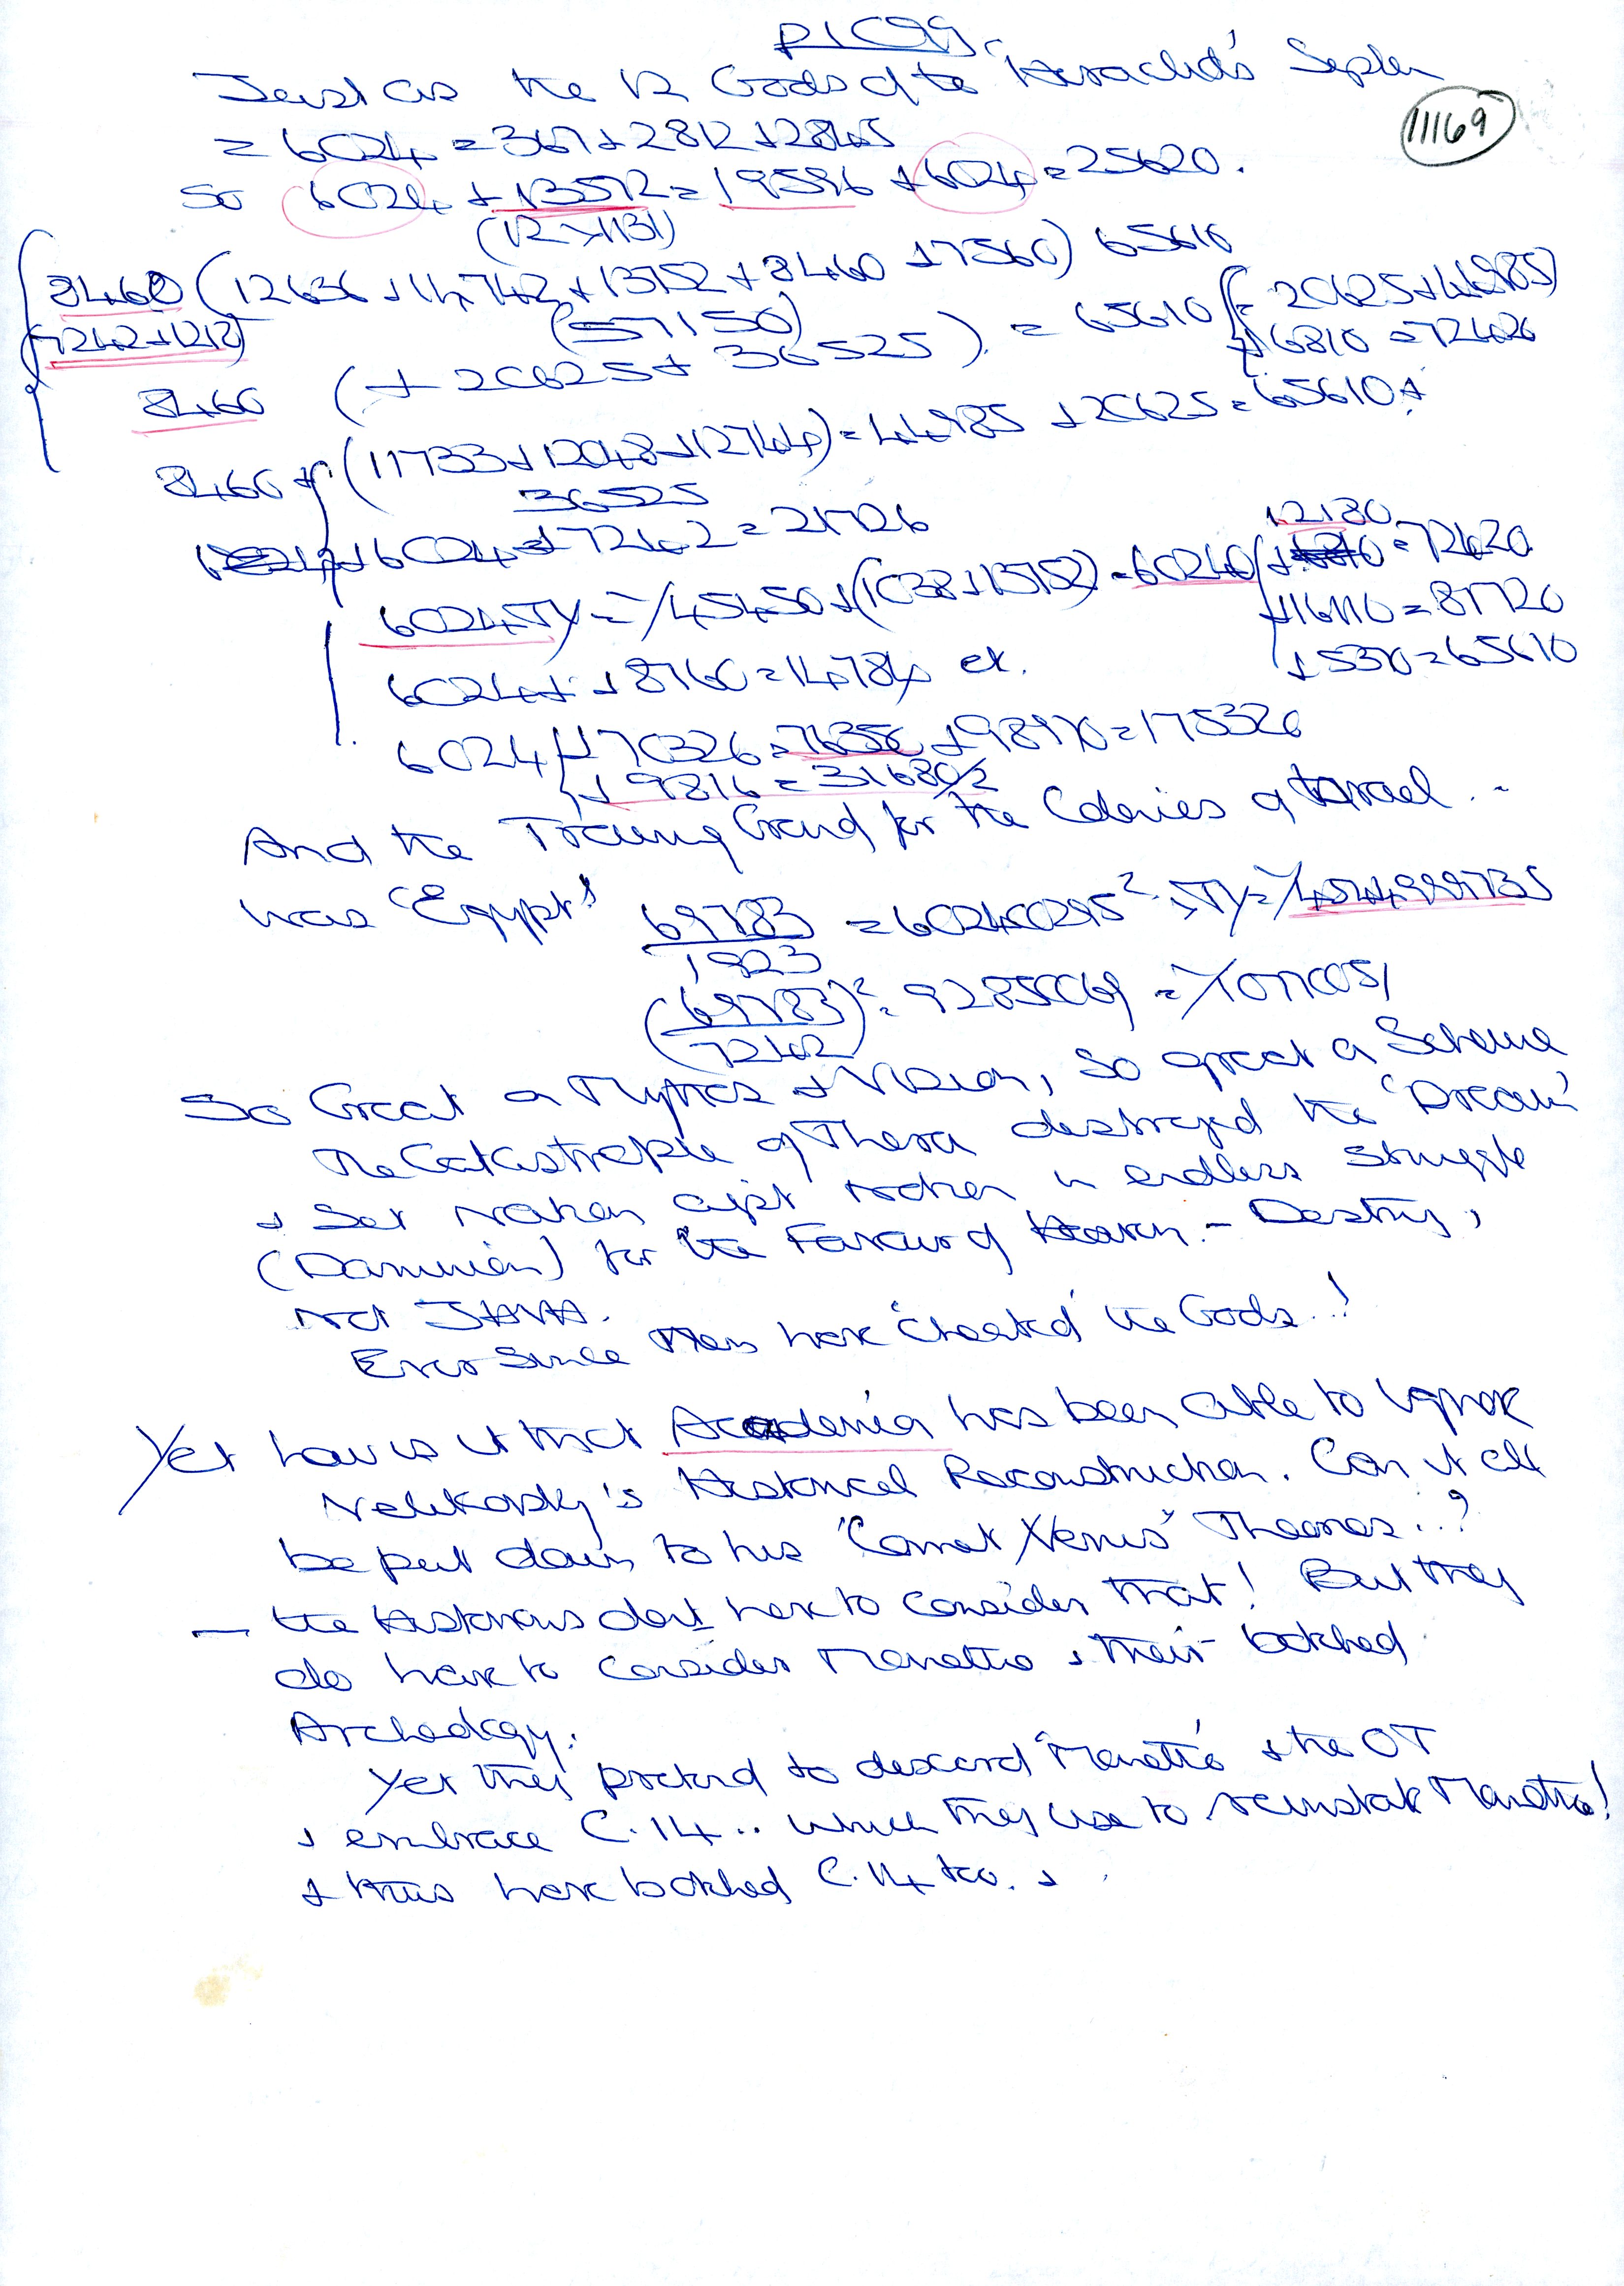 P1099.
11169
Just as the 12 Gods of the 'Heraclid's
= 6024 = 367 + 2812 + 2845
So 6024 + 13572 = 19596 + 6024 = 25620.
(12 × 1131)
8460 (12636 + 14,742 + 13752 + 8460 + 17560) 65610
(7242 + 1218) (57150) = 65610 (= 20625 + 44985)
8460 (+ 20625 + 36525) + 6810 = 72420
8460 + (11733 + 12048 + 12744) = 44985 + 20625 = 65610 +
36525
+ 6024 + 7242 = 21726
12180
+ (1038 + 13752) = 60240 = 72420
+ 16110 = 81720
6024 + + 8760 = 14,784 et. + 5370 = 65610
6024 + 70326 = 76350 + 98970 = 175320
+ 9816 = 31680/2
And the Ground for the Colonies of Israel ..
was 'Egypt'
69783 = 602400295²
1923
(69783)² = 92850069
7242
So Great a & Vision, so great a Scheme
The Catastrophe of Thera destroyed the 'Dream'
& Set Nation agst nation in endless struggle
(Dominion) for the Favour of Heaven. - Destiny,
not JAVA.
Ever Since Men have 'cheated' the Gods..!
Yet how is it that Academia has been able to ignore
Velikovsky's Historical Reconstruction. Can it all
be put down to his 'Comet Venus' Theories..?
— the Historians dont have to consider that! But they
do have to consider Manetho & their botched
Archeology.
Yet they pretend to discard 'Manetho & the OT
& embrace C.14 .. which they use to reinstate Manetho!
& thus have botched C.14 too. &